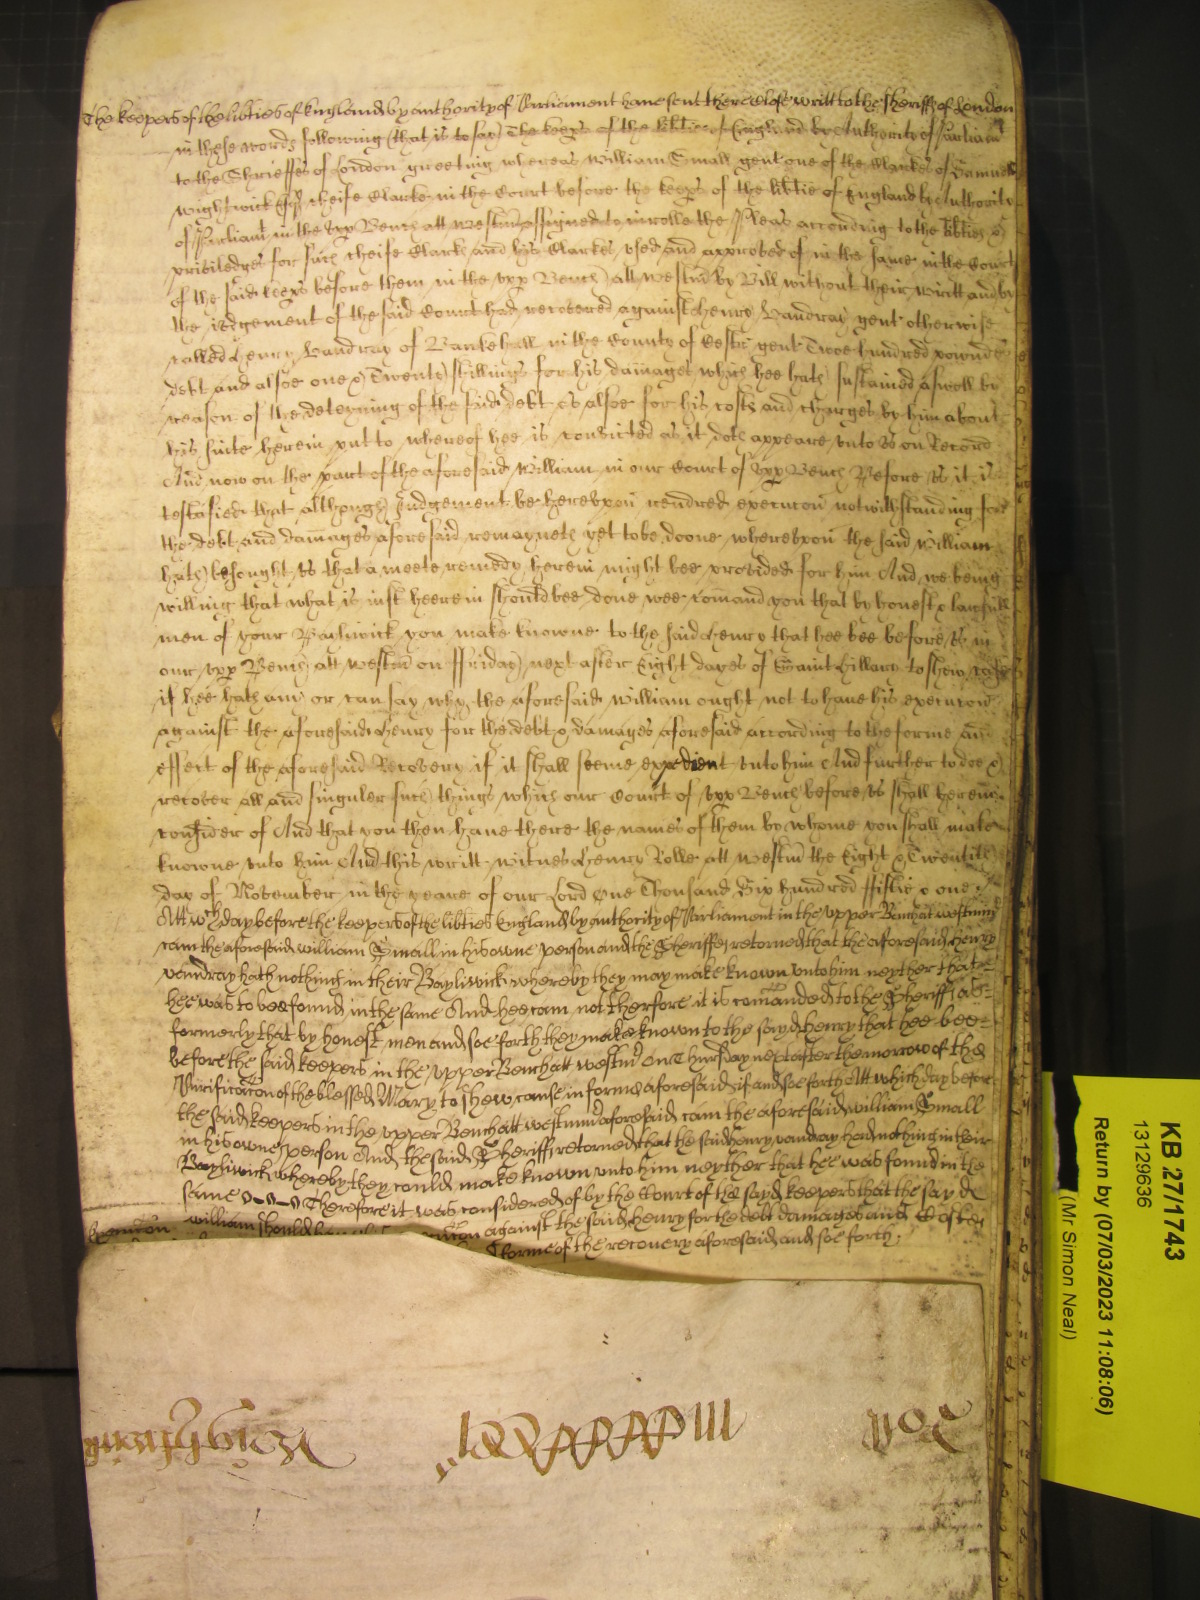 The keepers of the lib̃ties of England by authority of Parliament have sent there close writt to the sheriffs of London
in these words following (that is to say) The keeps of the lib̃tie of England by Authority of Parliamᵗ
to the Shrieffes of London greeting whereas William Small gent one of the Clarkes of Samuel
Wightwick Esqʳ cheife Clarke in the Court before the keeps of the lib̃tie of England by Authoritie
of Parliamᵗ in the vpp Bench att Westm̃ assigned to inrolle the Pleas according to the lib̃ties &
priviledges for such cheife Clarke and his Clarkes vsed and approved of in the same in the Court
of the said keeps before them in the vpp Bench att Westm̃ by Bill without their writt and by
the iudgement of the said Court had recovered against Henry Vandray gent otherwise
called Henry Vandray of in the County of gent Twoe hundred pownds
debt and alsoe one & Twenty shillings for his damages which hee hath sustained aswell by
reason of the deteyning of the said debt as alsoe for his costs and charges by him about
his suite herein put to whereof hee is convicted as it doth appeare vnto vs on Record
And now on the part of the aforesaid William in our Court of vpp Bench Before vs it is
testified that although Judgement be herevpon rendred execucon notwithstanding for
the debt and damages aforesaid remayneth yet to be doone wherevpon the said William
hath besought vs that a meete remedy herein might bee provided for him And we being
willing that what is iust heerein should bee done wee com̃and you that by honest & lawfull
men of your Bayliwick you make knowne to the said Henry that hee bee before vs in
our vpp Bench att Westm̃ on ffriday next after Eight dayes of Saint Hillary to shew cause
if hee hath any or can say why the aforesaid William ought not to have his execucon
against the aforesaid Henry for the debt & damages aforesaid according to the forme and
effect of the aforesaid Recovery if it shall seeme expedient vnto him And further to doe &
receive all and singuler such things which our Court of vpp Bench before vs shall herein
consider of And that you then have there the names of them by whome you shall make
knowne vnto him And this writt witnes Henry Rolle att Westm̃ the Eight & Twentith
day of November in the yeare of our Lord One Thousand Six hundred ffiftie & one
Att wᶜʰ day before the keepers of the lib̃ties England by authority of Parliament in the vpper Bench at westminr̃
cam the aforesaid william Small in his owne person and the Sheriffe retorned that the aforesaid henry
vandray hath nothing in their Bayliwick whereby they may make known vnto him neyther that
hee was to bee found in the same And hee cam not therfore it is com̃anded to the Sheriff as
formerly that by honest men and soe forth they make known to the sayd henry that hee bee
before the said keepers in the vpper Bench att westmr̃ on Thursday next after the morrow of the
Purificac̃on of the blessed Mary to shew cause in forme aforesaid if and soe forth Att which day before
the said keepers in the vpper Bench att westminr̃ aforesaid cam the aforesaid william Small
in his owne person And the said Sheriff retorned that the said henry vandray had nothing in their
Bayliwick whereby they could make known vnto him neyther that hee was found in the
same Therefore it was considered of by the Court of the sayd keepers that the sayd
william should against the said henry for the debt damages and Costes
forme of the recovery aforesaid and soe forth
Roll
Wightwick
KB 27/1743
13129636
Return by (07/03/2023 11:08:06)
(Mr Simon Neal)